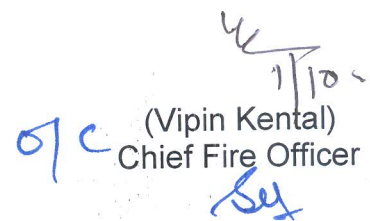 1/10
(Vipin Kental)
o/c Chief Fire Officer